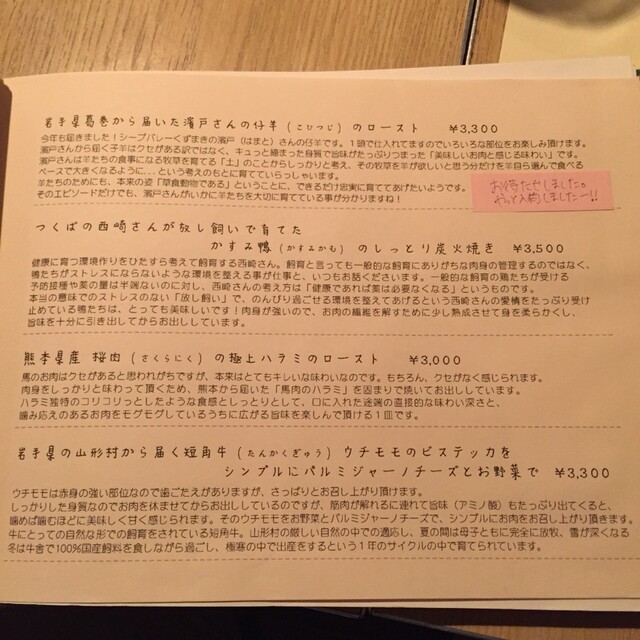 岩手県葛巻から届いた濱戸さんの仔羊（こひつじ）のロースト　¥3,300
今年も届きました！シープバレーくずまきの濱戸（はまと）さんの仔羊です。1頭で仕入れてますのでいろいろな部位をお楽しみ頂けます。
濱戸さんから届く子羊はクセがある訳ではなく、キュっと締まった身質で旨味がたっぷりつまった「美味しいお肉と感じる味わい」
濱戸さんは羊たちの食事になる牧草を育てる「土」のことからしっかりと考え、その牧草を羊が欲しいと思う分だけを羊自ら選んで食べる
ペースで大きくなるように...という考えのもとに育てていらっしゃいます。
羊たちのためにも、本来の姿「草食動物である」ということに、できるだけ忠実に育ててあげたいようです。
そのエピソードだけでも、濱戸さんがいかに羊たちを大切に育てている事が分かりますね！
お待たせしました。
やっと入荷しましたー!!
つくばの西崎さんが放し飼いで育てた
かすみ鴨（かすみかも）のしっとり炭火焼き　¥3,500
健康に育つ環境作りをひたすら考えて飼育する西崎さん。飼育と言っても一般的な飼育にありがちな肉身の管理するのではなく、
鴨たちがストレスにならないような環境を整える事が仕事と、いつもお話くださいます。一般的な飼育の鶏たちが受ける
予防接種や薬の量は半端ないのに対し、西崎さんの考え方は「健康であれば薬は必要なくなる」というものです。
本当の意味でのストレスのない「放し飼い」で、のんびり過ごせる環境を整えてあげるという西崎さんの愛情をたっぷり受け
止めている鴨たちは、とっても美味しいです！肉身が強いので、お肉の繊維を解すために少し熟成させて身を柔らかくし、
旨味を十分に引き出してからお出ししています。
熊本県産 桜肉（さくらにく）の極上ハラミのロースト　¥3,000
馬のお肉はクセがあると思われがちですが、本来はとてもキレイな味わいなのです。もちろん、クセがなく感じられます。
肉身をしっかりと味わって頂くため、熊本から届いた「馬肉のハラミ」を固まりで焼いてお出ししています。
ハラミ独特のコリコリっとしたような食感としっとりとして、口に入れた途端の直接的な味わい深さと、
噛み応えのあるお肉をモグモグしているうちに広がる旨味を楽しんで頂ける1皿です。
岩手県の山形村から届く短角牛（たんかくぎゅう）ウチモモのビステッカを
シンプルにパルミジャーノチーズとお野菜で　¥3,300
ウチモモは赤身の強い部位なので歯ごたえがありますが、さっぱりとお召し上がり頂けます。
しっかりした身質なのでお肉を休ませてからお出ししているのですが、筋肉が解れるに連れて旨味（アミノ酸）もたっぷり出てくると、
噛めば噛むほどに美味しく甘く感じられます。そのウチモモをお野菜とパルミジャーノチーズで、シンプルにお肉をお召し上がり頂きます。
牛にとっての自然な形での飼育をされている短角牛。山形村の厳しい自然の中での適応し、夏の間は母子ともに完全に放牧、雪が深くなる
冬は牛舎で100%国産飼料を食しながら過ごし、極寒の中で出産をするという1年のサイクルの中で育てられています。